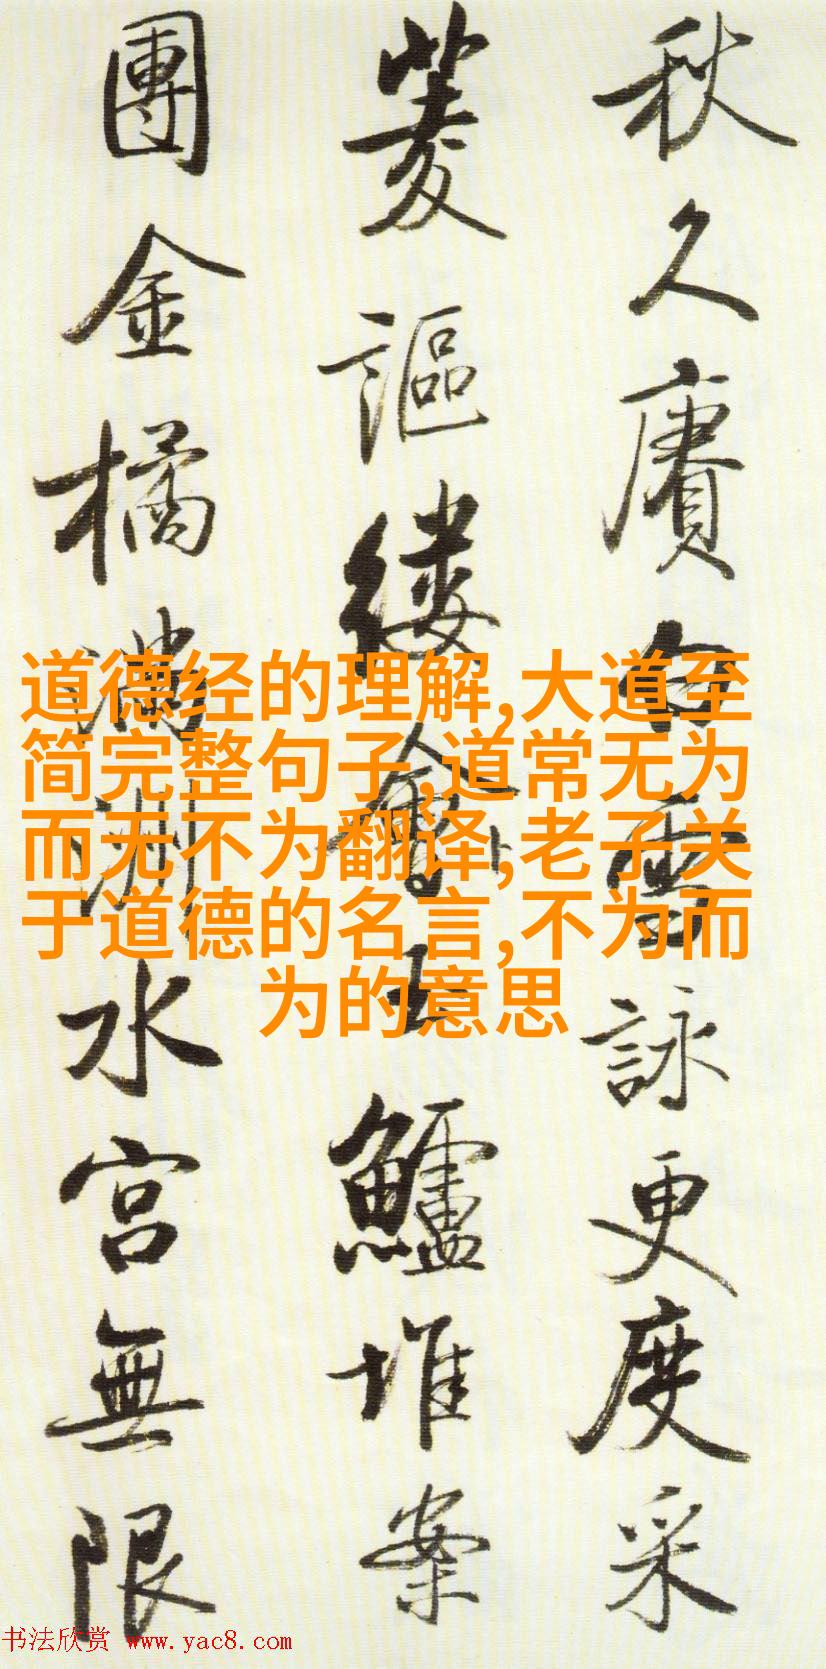 秋久賡白雪詠更度采
菱謳縷會玉鱸堆案
團金橘滿洲水宮無限
道德经的理解,大道至
简完整句子,道常无为
而无不为翻译,老子关
于道德的名言,不为而
为的意思
书法欣赏 www.yac8.com